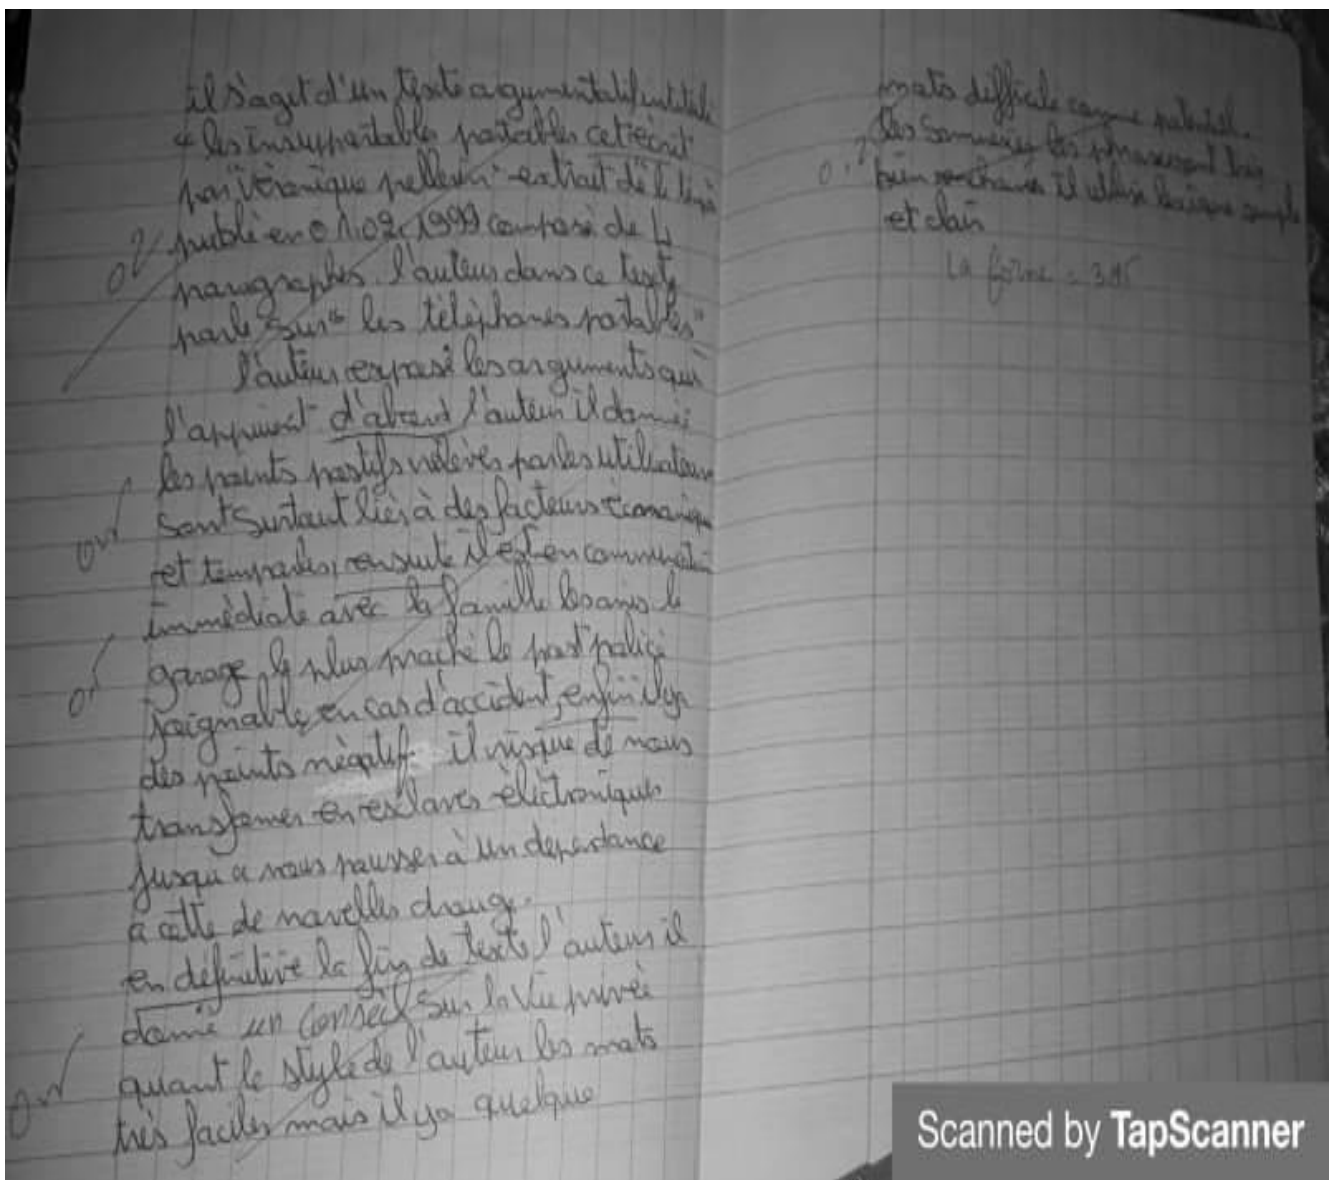 il s'agit d'un texte argumentatif intitulé
" les insupportables portables cet écrit
par Véronique pellerin extrait de le
publié en 01.02.1999 composé de 4
paragraphes. l'auteur dans ce texte
parle sur " les télèphones portables "
l'auteur exposé les arguments qui
l'appuient d'abord l'auteur il donné
les points postifs relevés par les utilisateurs
sont surtout liés à des facteurs économique
et temporles, ensuite il est en communication
immédiate avec la famille les amis le
garage le plus proche le post police
joignable en cas d'accident, enfin il ya
des points négatif il risque de nous
transfomer en esclaves électroniques
jusqu'a nous pousser à un dependance
a cette de novelles drouge.
en définitive la fin de texte l'auteur il
donné un conseil sur la vie privée
quant le style de l'auteur les mots
très faciles mais il ya quelque
mots difficile comme potentiel.
les les phrases sont bien
bien enchainés il utilise simple
et clair
La forme = 3.15
Scanned by TapScanner